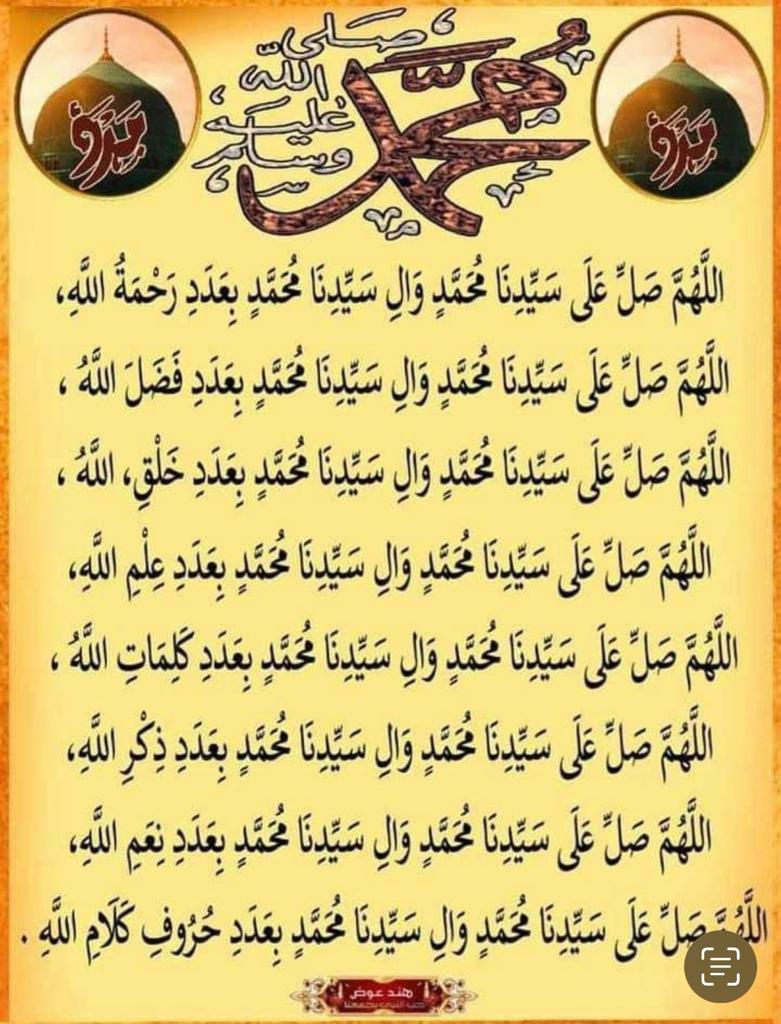 محمد صلى الله عليه وسلم
اللَّهُمَّ صَلِّ عَلَى سَيِّدِنَا مُحَمَّدٍ وَالِ سَيِّدِنَا مُحَمَّدٍ بِعَدَدِ رَحْمَةُ اللَّهِ،
اللَّهُمَّ صَلِّ عَلَى سَيِّدِنَا مُحَمَّدٍ وَالِ سَيِّدِنَا مُحَمَّدٍ بِعَدَدِ فَضَلَ اللَّهُ ،
اللَّهُمَّ صَلِّ عَلَى سَيِّدِنَا مُحَمَّدٍ وَالِ سَيِّدِنَا مُحَمَّدٍ بِعَدَدِ خَلْقِ، اللَّهُ ،
اللَّهُمَّ صَلِّ عَلَى سَيِّدِنَا مُحَمَّدٍ وَالِ سَيِّدِنَا مُحَمَّدٍ بِعَدَدِ عِلْمِ اللَّهِ،
اللَّهُمَّ صَلِّ عَلَى سَيِّدِنَا مُحَمَّدٍ وَالِ سَيِّدِنَا مُحَمَّدٍ بِعَدَدِ كَلِمَاتِ اللَّهُ ،
اللَّهُمَّ صَلِّ عَلَى سَيِّدِنَا مُحَمَّدٍ وَالِ سَيِّدِنَا مُحَمَّدٍ بِعَدَدِ ذِكْرِ اللَّهِ،
اللَّهُمَّ صَلِّ عَلَى سَيِّدِنَا مُحَمَّدٍ وَالِ سَيِّدِنَا مُحَمَّدٍ بِعَدَدِ نِعَمِ اللَّهِ،
اللَّهُمَّ صَلِّ عَلَى سَيِّدِنَا مُحَمَّدٍ وَالِ سَيِّدِنَا مُحَمَّدٍ بِعَدَدِ حُرُوفِ كَلَامِ اللَّهِ .
هند عوض
حب النبي يجمعنا